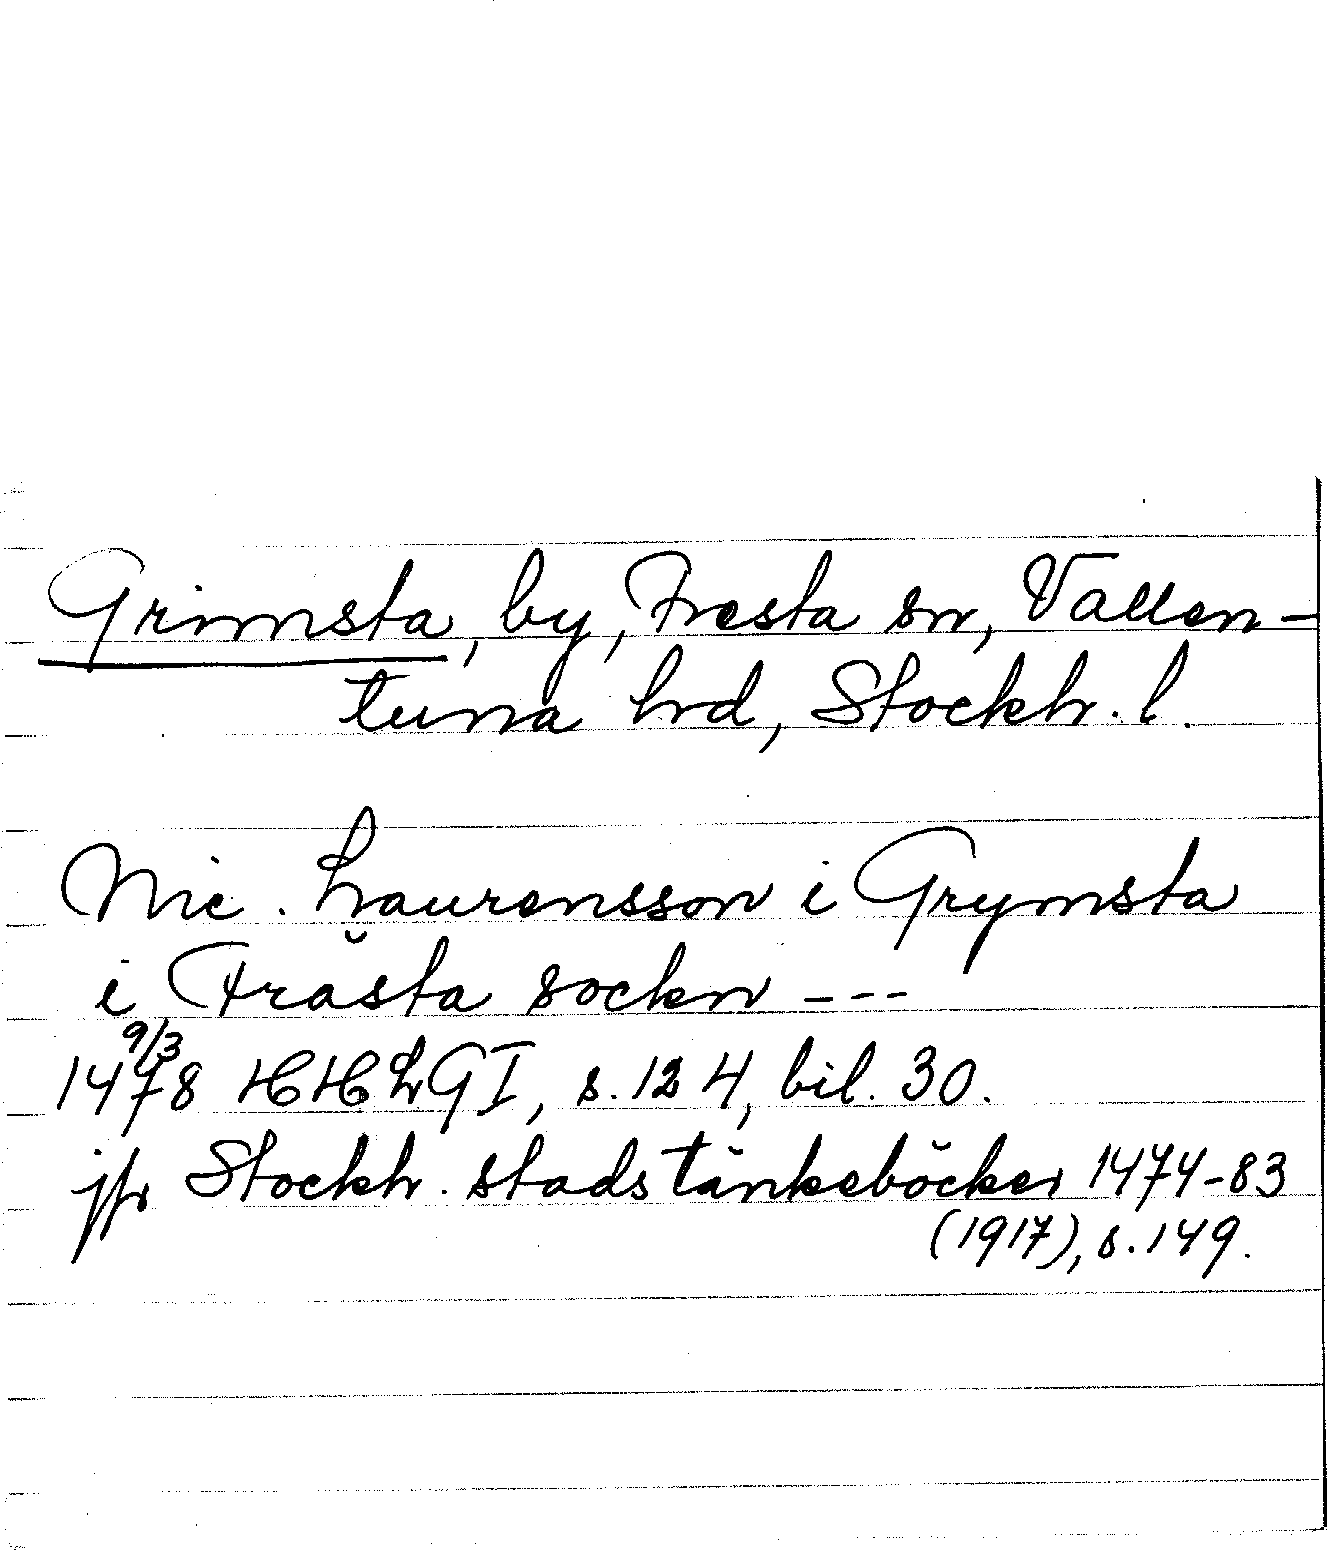 Grimsta, by, Fresta sn, Vallen-
tuna hrd, Stockh. l.
Nic. Laurensson i Grymsta
i Frästa sockn ---
9/3
1478 HHLGI, s. 124, bil. 30.
jfr Stockh. stads tänkeböcker 1474-83
(1917), s. 149.